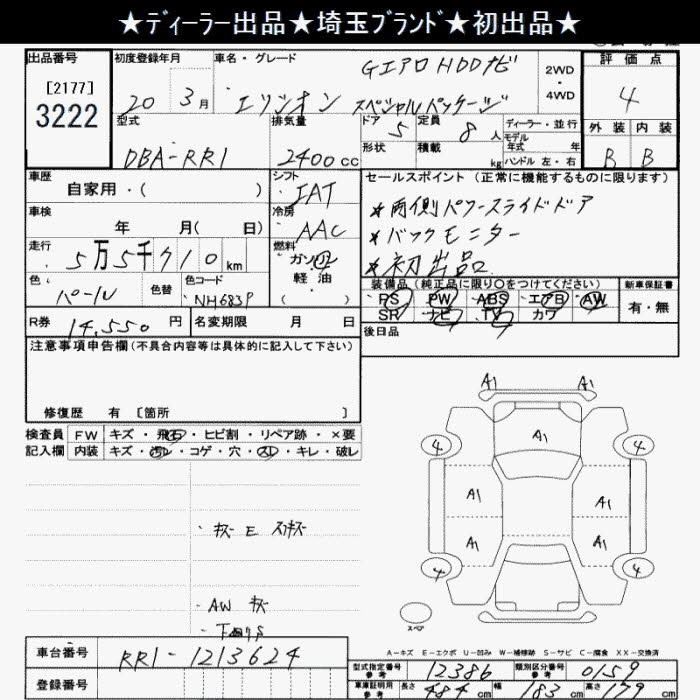 ★ディーラー出品★埼玉ブランド★初出品★
出品番号
[2177]
3222
初度登録年月
20 3月
車名・グレード
GエアロHDDナビ
エリシオン スペシャルパッケージ
2WD
・
4WD
評価点
4
外装 内装
B B
型式
DBA-RR1
排気量
2400cc
ドア 5
形状
定員 8人
積載 kg
ディーラー・並行
モデル
年式 年
ハンドル 左・右
車歴
自家用・( )
シフト
IAT
車検
年 月( 日)
冷房
AAC
走行
5万5千710km
燃料
ガソリン
軽油
( )
色
パール
色替
色コード
NH683P
R券
14,550円
名変期限 月 日
セールスポイント(正常に機能するものに限ります)
★両側パワースライドドア
★バックモニター
★初出品
装備品(純正品に限り○をつけてください)
PS・PW・ABS・エアB・AW
SR・ナビ・TV・カワ
新車保証書
有・無
後日品
注意事項申告欄(不具合内容等は具体的に記入して下さい)
修復歴 有 [箇所 ]
検査員
記入欄
FW キズ・飛石・ヒビ割・リペア跡・×要
内装 キズ・汚レ・コゲ・穴・スレ・キレ・破レ
・キズ E スリキズ
・AW キズ
A1 A1
A1
4 4
A1 A1
A1 A1
4 4
スペア
A-キズ E-エクボ U-凹み W-補修跡 S-サビ C-腐食 XX-交換済
車台番号
RR1-1213624
登録番号
型式指定番号
参考
12386
類別区分番号
参考
0159
車庫証明用
参考
長さ 484cm 幅 183cm 高さ 179cm